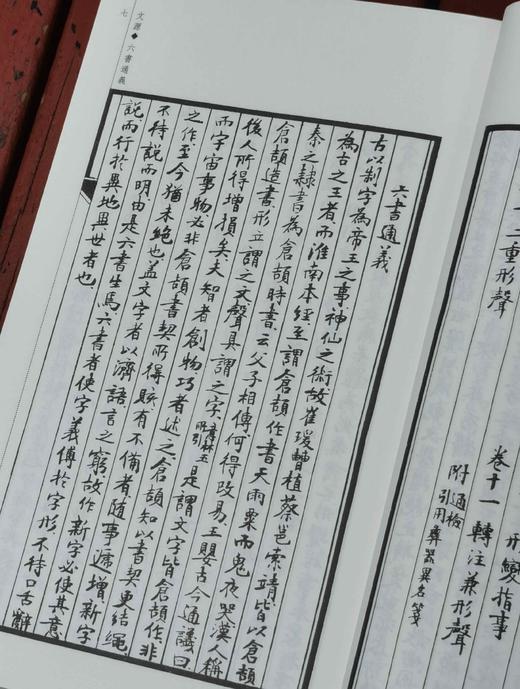 二重形聲
形變指事
卷十一 轉注兼形聲
附 通檢
引用彝器異名箋
六書通義
古以制字為帝王之事神仙之術故崔瑗曹植蔡邕索靖皆以倉頡
為古之王者而淮南本經至謂倉頡作書天雨粟而鬼夜哭漢人稱
秦之隸書為倉頡時書云父子相傳何得改易王嬰古今通議曰
倉頡造書形立謂之文聲具謂之字意林五所引是謂文字皆倉頡作非
後人所得增損矣夫智者創物巧者述之倉頡知以書契更結繩
而宇宙事物必非倉頡書契所得賅有不備者隨事遞增新字
之作至今猶未絕也蓋文字者以濟語言之窮故作新字必使其意
不待說而明由是六書生焉六書者使字義傅於字形不待口舌辭
說而行於異地異世者也
文源◆六書通義
七